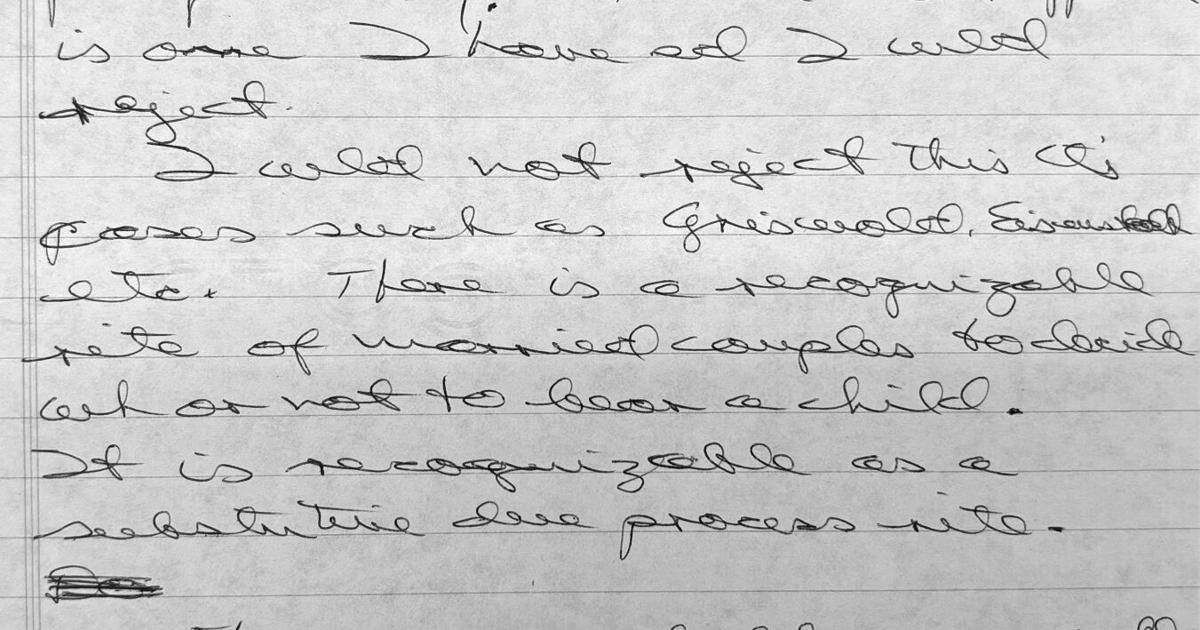 is one I have and I would
reject.
I would not reject this Ct's
cases such as Griswold, Eisenstadt
etc. There is a recognizable
rite of married couples to decide
wh or not to bear a child.
It is recognizable as a
substutive due process rite.